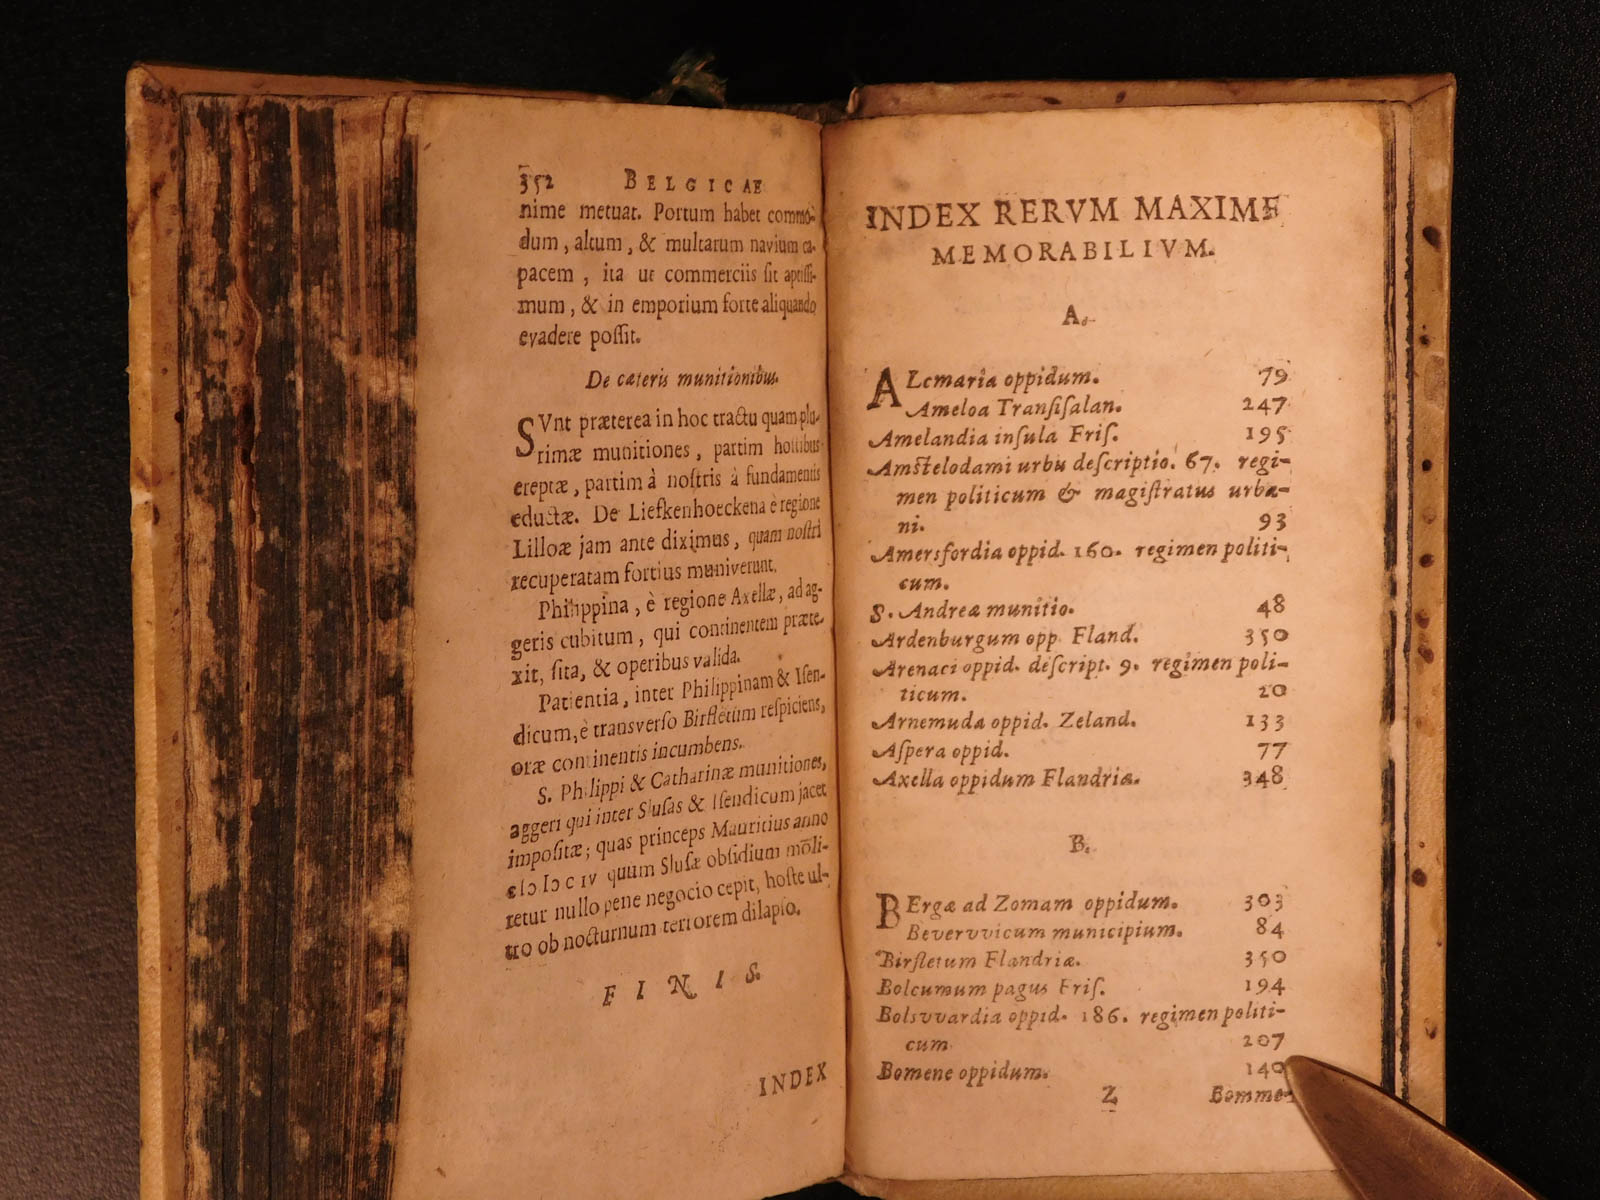 352 BELGICAE
nime metuat. Portum habet commo-
dum, altum, & multarum navium ca-
pacem, ita ut commerciis sit aptissi-
mum, & in emporium forte aliquando
evadere possit.
De cæteris munitionibus.
SVnt præterea in hoc tractu quam plu-
rimæ munitiones, partim hostibus
ereptæ, partim à nostris à fundamentis
eductæ. De Liefkenhoeckena è regione
Lilloæ jam ante diximus, quam nostri
recuperatam fortius muniverunt.
Philippina, è regione Axellæ, ad ag-
geris cubitum, qui continentem præte-
xit, sita, & operibus valida.
Patientia, inter Philippinam & Isen-
dicum, è transverso Birfletum respiciens,
oræ continentis incumbens.
S. Philippi & Catharinæ munitiones,
aggeri qui inter Slusas & Isendicum jacet
impositæ; quas princeps Mauritius anno
cIɔ Iɔ c IV quum Slusæ obsidium moli-
retur nullo pene negocio cepit, hoste ul-
tro ob nocturnum terrorem dilapso.
FINIS.
INDEX
INDEX RERVM MAXIME
MEMORABILIVM.
A.
ALcmaria oppidum. 79
Ameloa Transisalan. 247
Amelandia insula Fris. 195
Amstelodami urbis descriptio. 67. regi-
men politicum & magistratus urba-
ni. 93
Amersfordia oppid. 160. regimen politi-
cum.
S. Andreæ munitio. 48
Ardenburgum opp. Fland. 350
Arenaci oppid. descript. 9. regimen poli-
ticum. 20
Arnemuda oppid. Zeland. 133
Aspera oppid. 77
Axella oppidum Flandriæ. 348
B.
BErgæ ad Zomam oppidum. 303
Bevervvicum municipium. 84
Birfletum Flandriæ. 350
Bolcumum pagus Fris. 194
Bolsvvardia oppid. 186. regimen politi-
cum 207
Bomene oppidum. 140
Z Bomme-